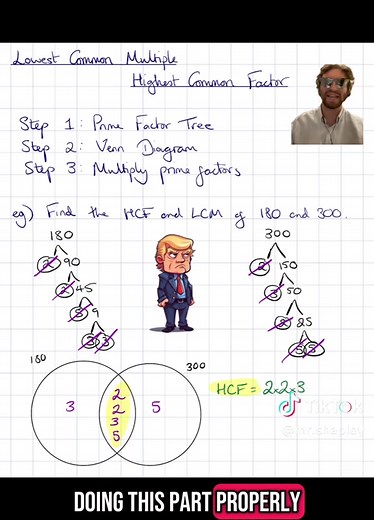 Lowest Common Multiple
Highest Common Factor
Step 1: Prime Factor Tree
Step 2: Venn Diagram
Step 3: Multiply prime factors
eg) Find the HCF and LCM of 180 and 300.
180
2 90
2 45
5 9
3 3
300
2 150
3 50
2 25
5 5
180
300
3
2
2
3
5
5
HCF = 2x2x3
TikTok
DOING THIS PART PROPERLY